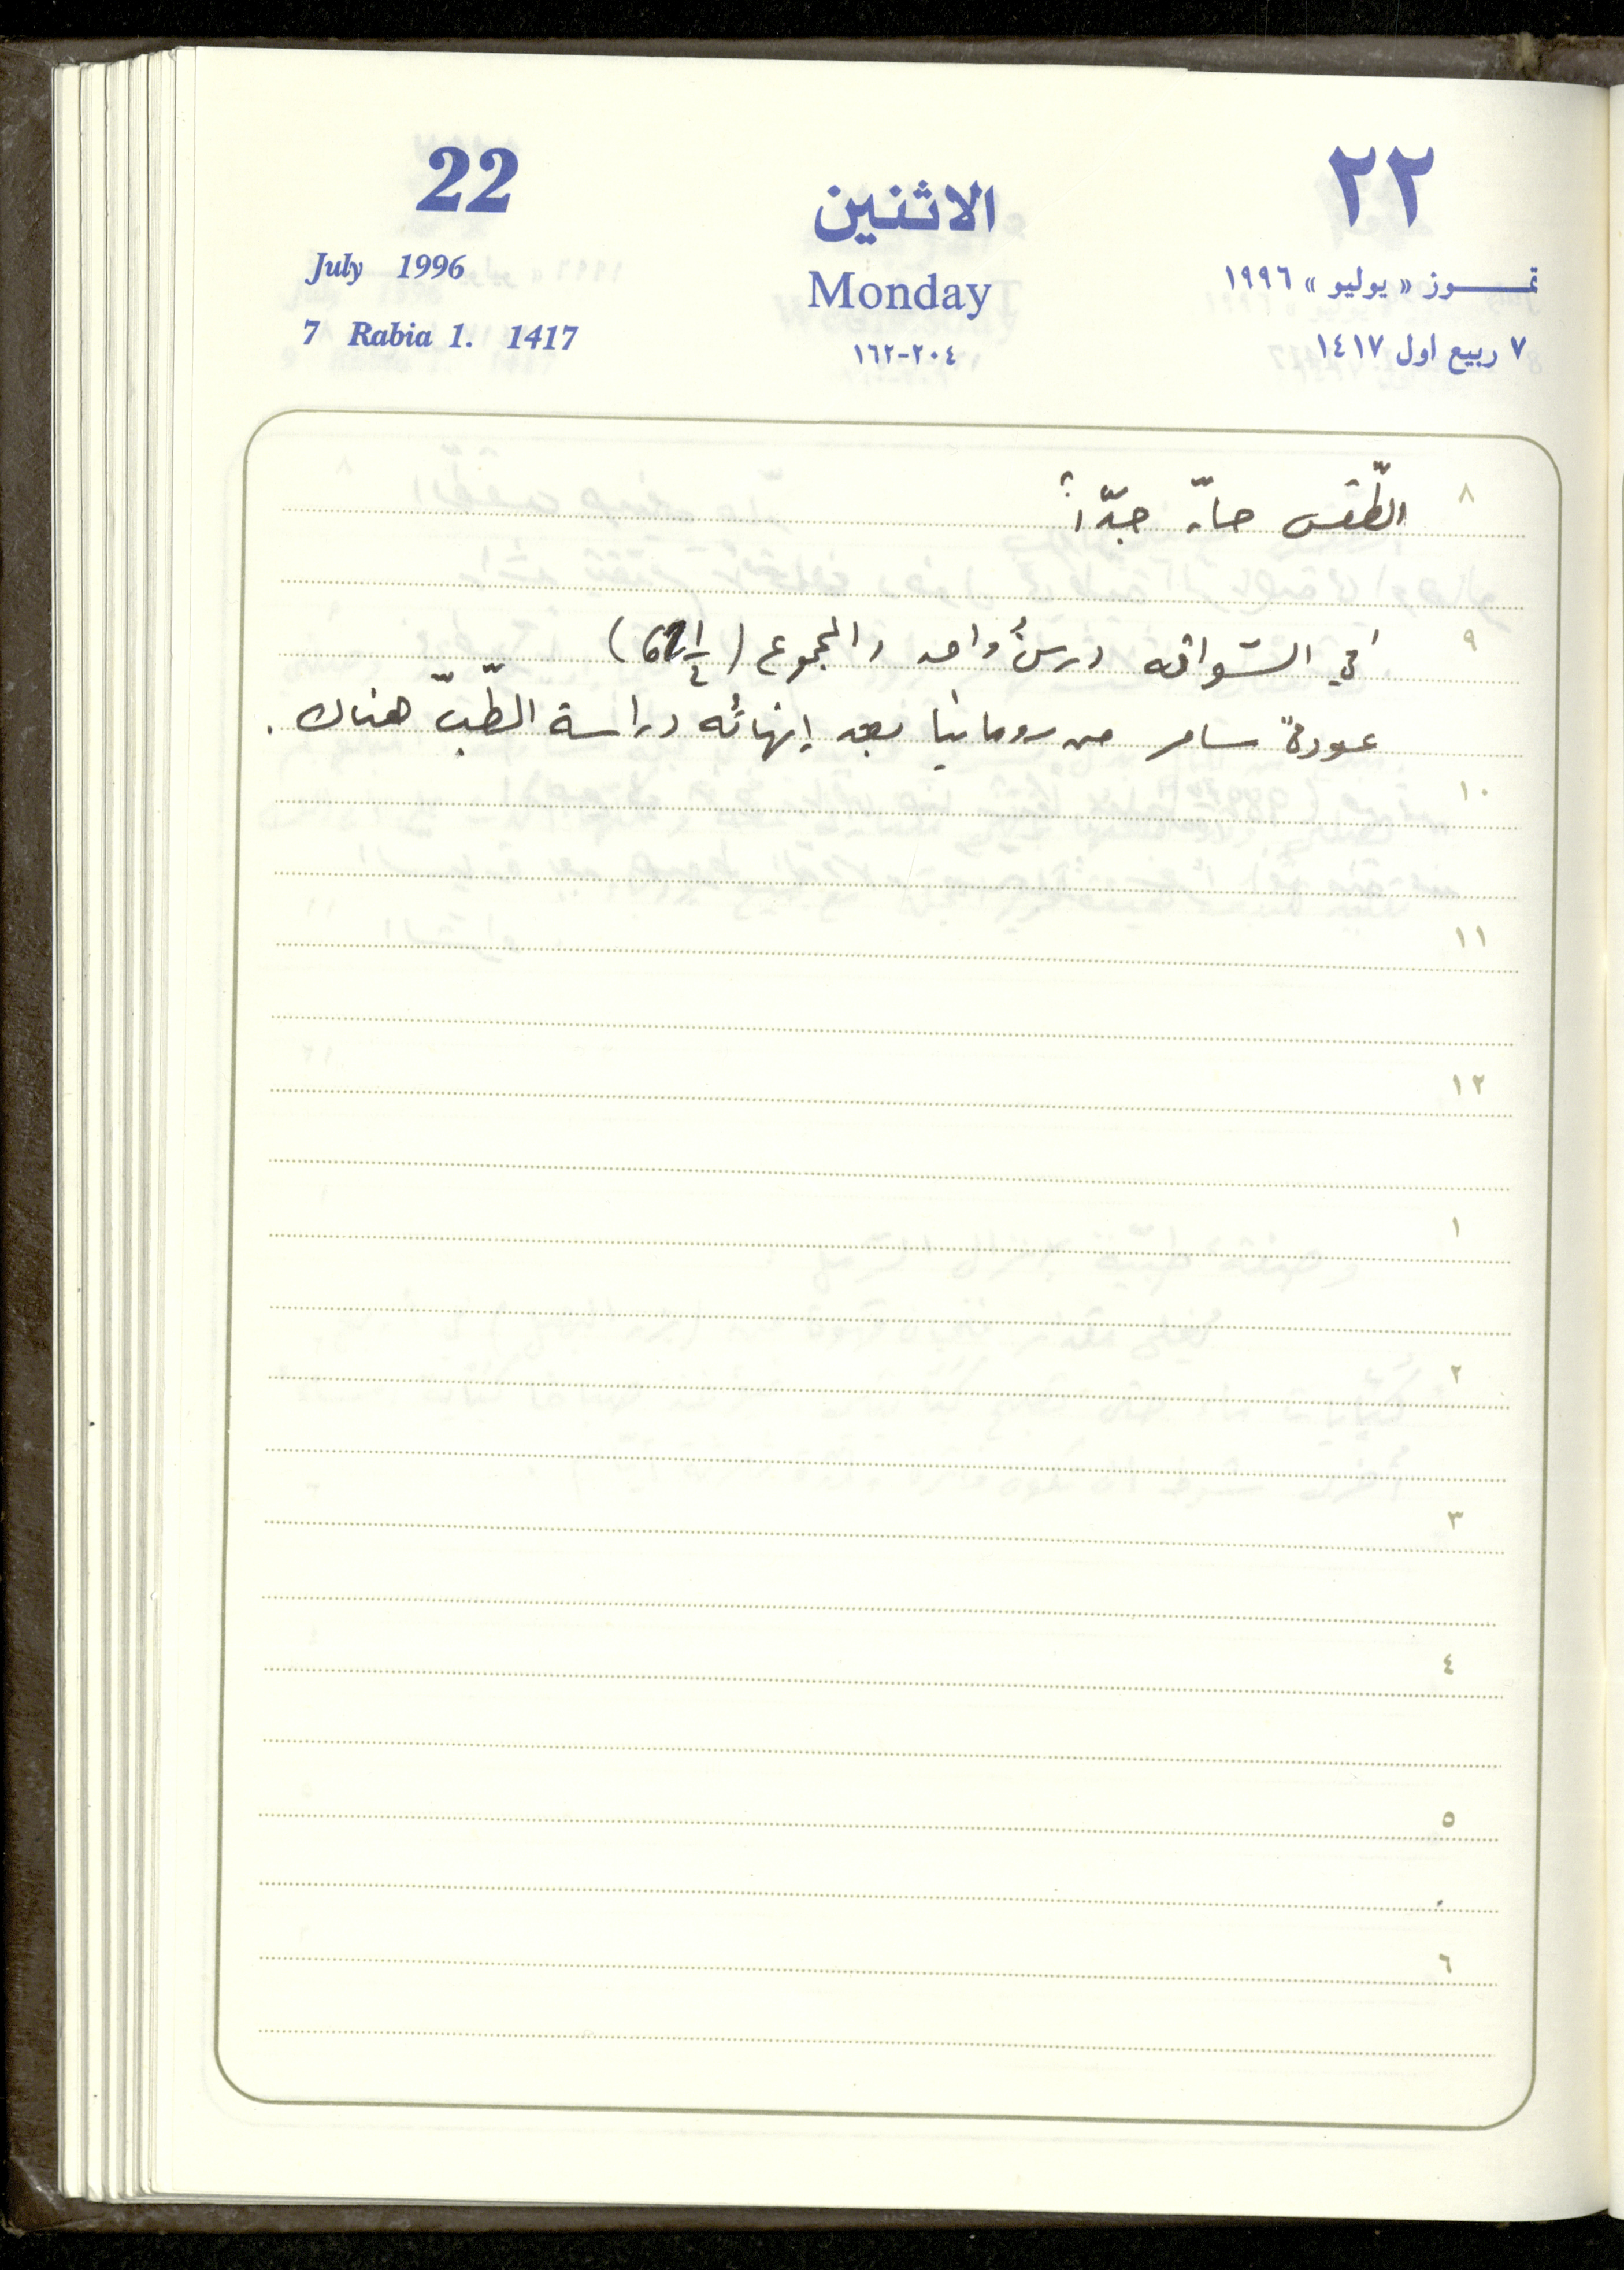 22
الاثنين
٢٢
July 1996
Monday
تمــوز « يوليو » ١٩٩٦
7 Rabia 1. 1417
١٦٢-٢٠٤
٧ ربيع اول ١٤١٧
٨
الطّقس حارّ جدّاً
٩
في السّواقه درسٌ واحد والمجموع
عودة سامر من رومانيا بعد إنهائه دراسة الطّبّ هناك .
١٠
١١
١٢
١
٢
٣
٤
٥
٦